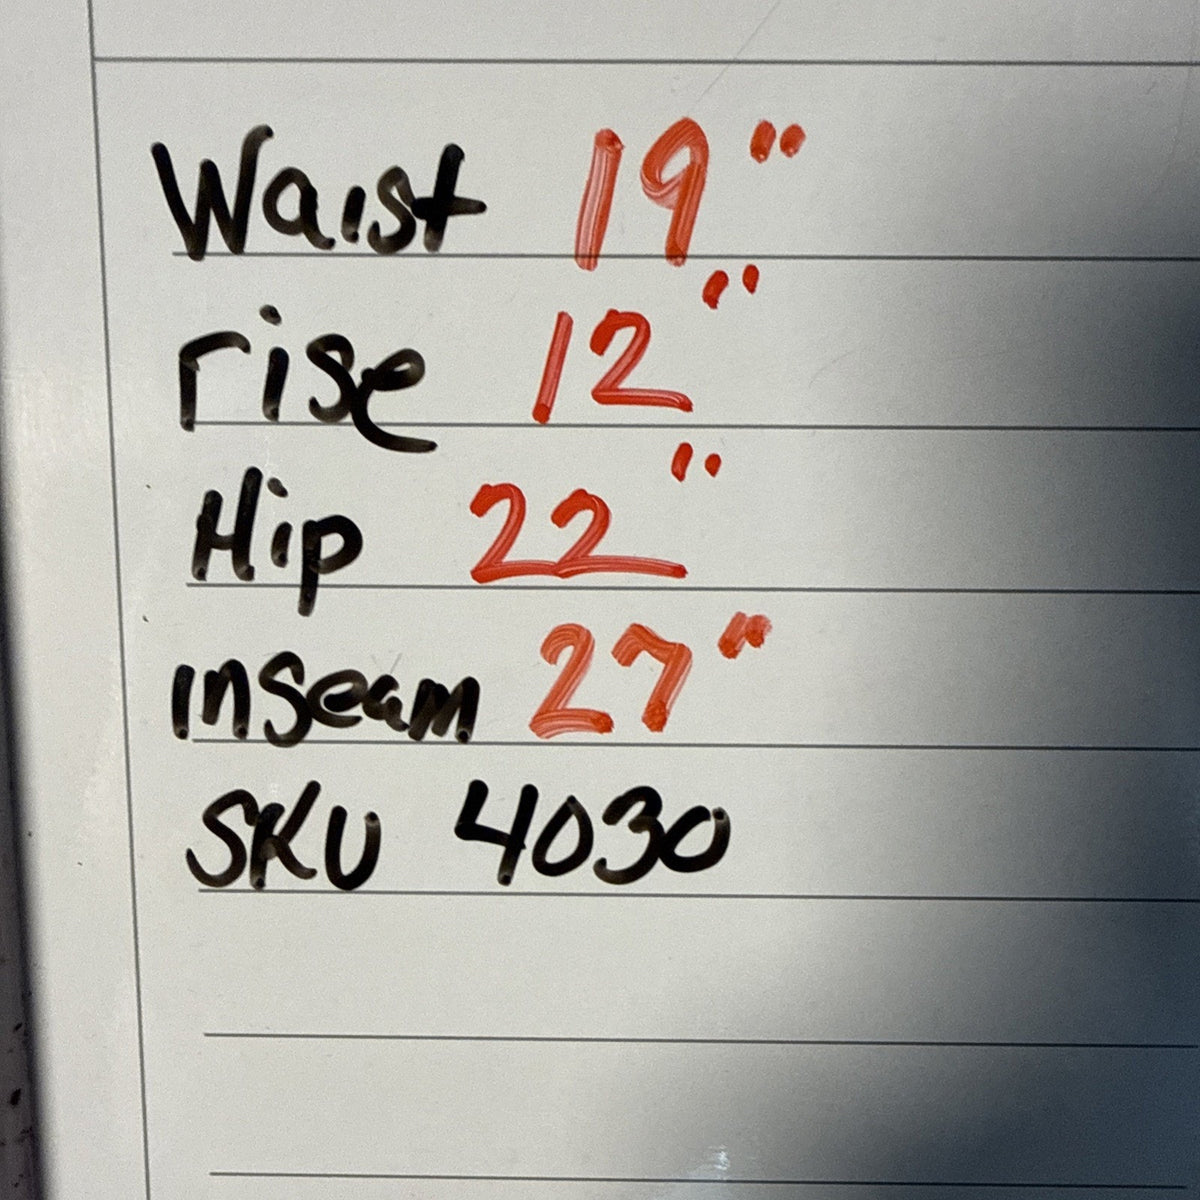 Waist 19"
rise 12"
Hip 22"
inseam 27"
SKU 4030